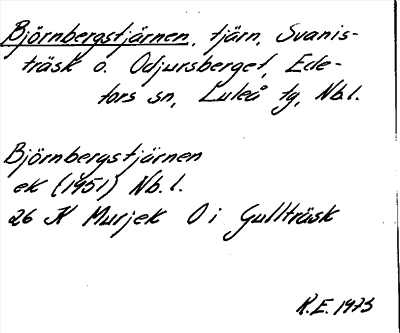 Björnbergstjärnen, tjärn, Svanis-
träsk o. Odjursberget, Ede-
fors sn, Luleå tg, Nb.l.
Björnbergstjärnen
ek (1951) Nb.l.
26 K Murjek O i Gullträsk
K.E. 1973